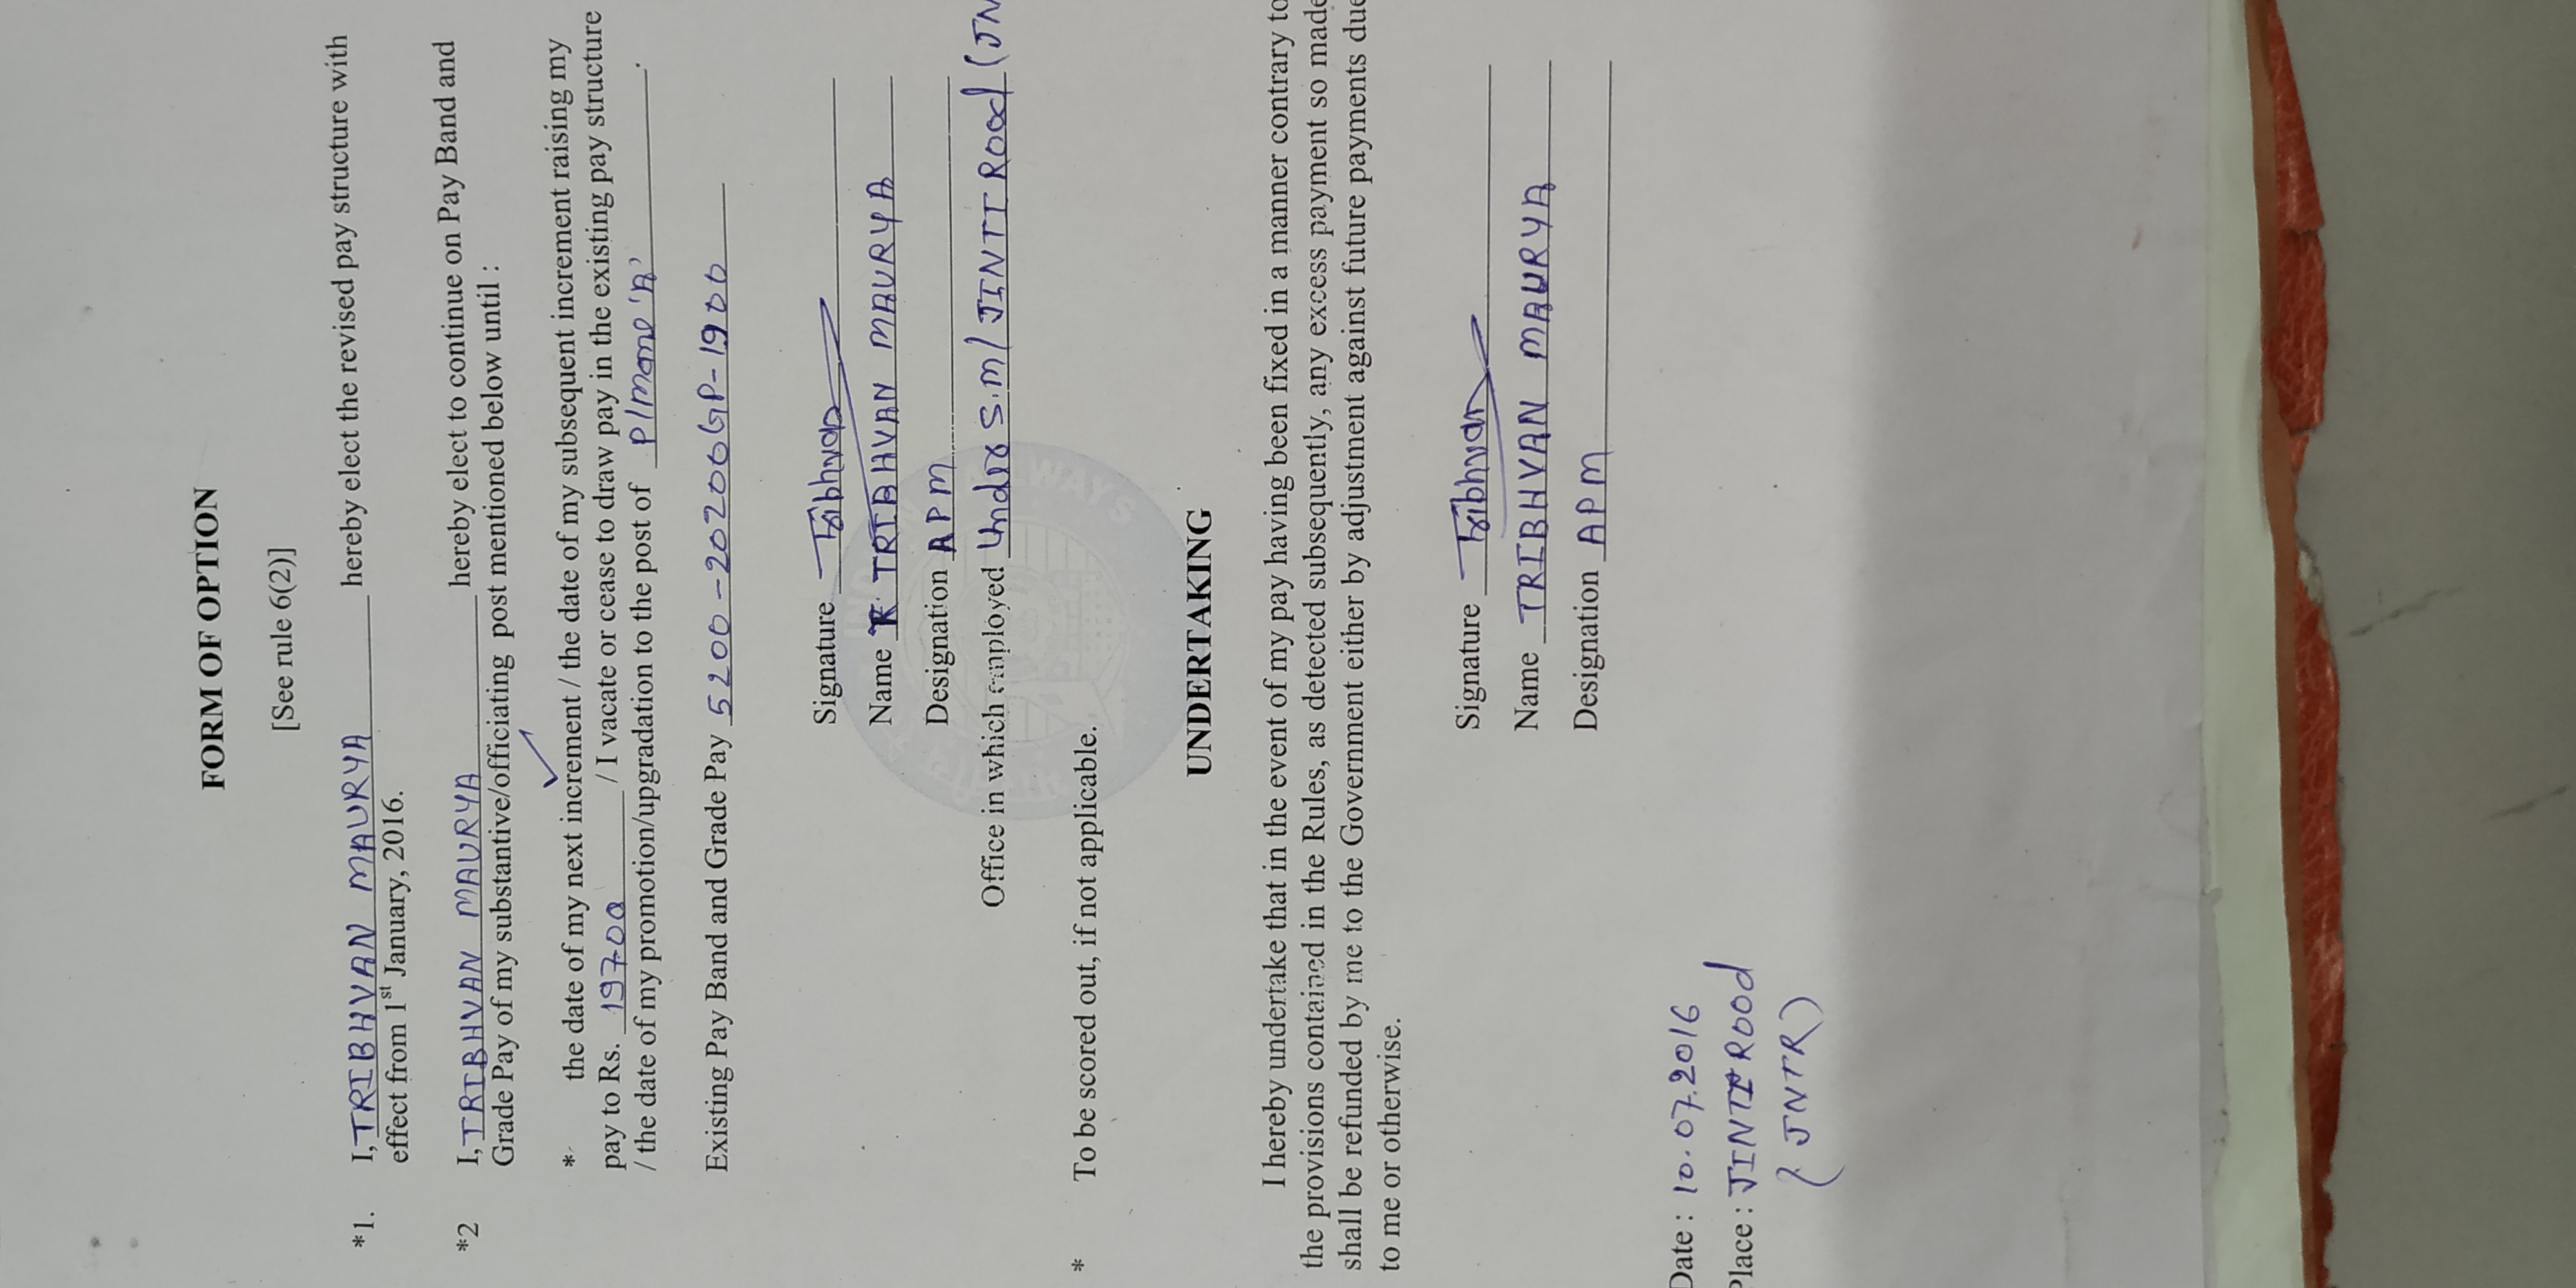 FORM OF OPTION
[See rule 6(2)]
*1. I, TRIBHVAN MAURYA hereby elect the revised pay structure with
effect from 1st January, 2016.
*2 I, TRIBHVAN MAURYA hereby elect to continue on Pay Band and
Grade Pay of my substantive/officiating post mentioned below until :
* the date of my next increment / the date of my subsequent increment raising my
pay to Rs. 19700 / I vacate or cease to draw pay in the existing pay structure
/ the date of my promotion/upgradation to the post of 'A'.
Existing Pay Band and Grade Pay 5200-20200 GP-1900
Signature Tribhvan
Name TRIBHVAN MAURYA
Designation APM
Office in which employed Under S.M/ JINTI Rood (JN
* To be scored out, if not applicable.
UNDERTAKING
I hereby undertake that in the event of my pay having been fixed in a manner contrary to
the provisions contained in the Rules, as detected subsequently, any excess payment so made
shall be refunded by me to the Government either by adjustment against future payments due
to me or otherwise.
Signature Tribhvan
Name TRIBHVAN MAURYA
Designation APM
Date : 10.07.2016
Place : JINTI Rood
(JNTR)